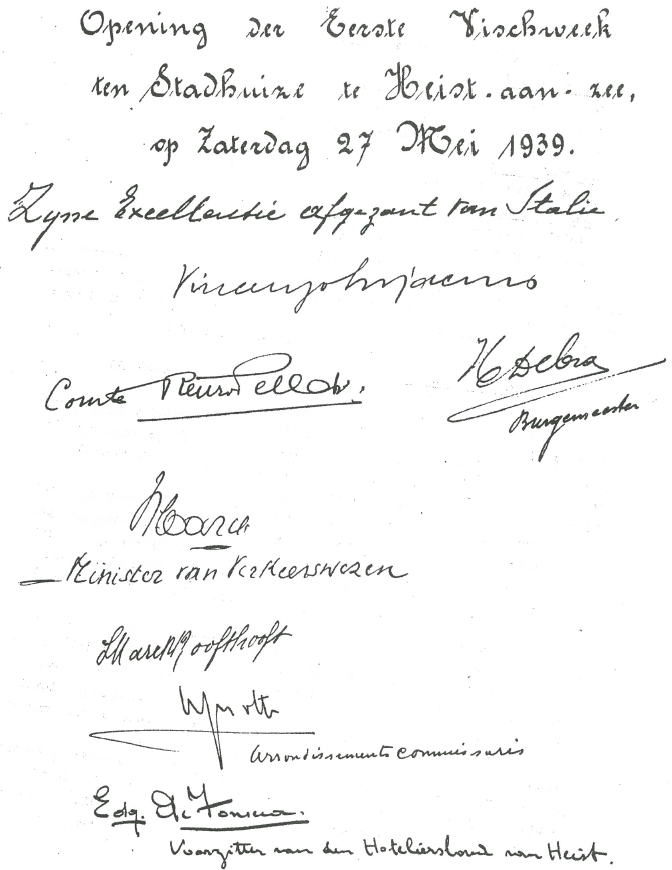 Opening der Eerste Vischweek
ten Stadhuize te Heist-aan-zee,
op Zaterdag 27 Mei 1939.
Zijne Excellentie afgezant van Italie
Comte
H Debra
Burgemeester
Marck
Minister van Verkeerswezen
arrondissementscommissaris
Edg.
Voorzitter van den Hoteliersbond van Heist.